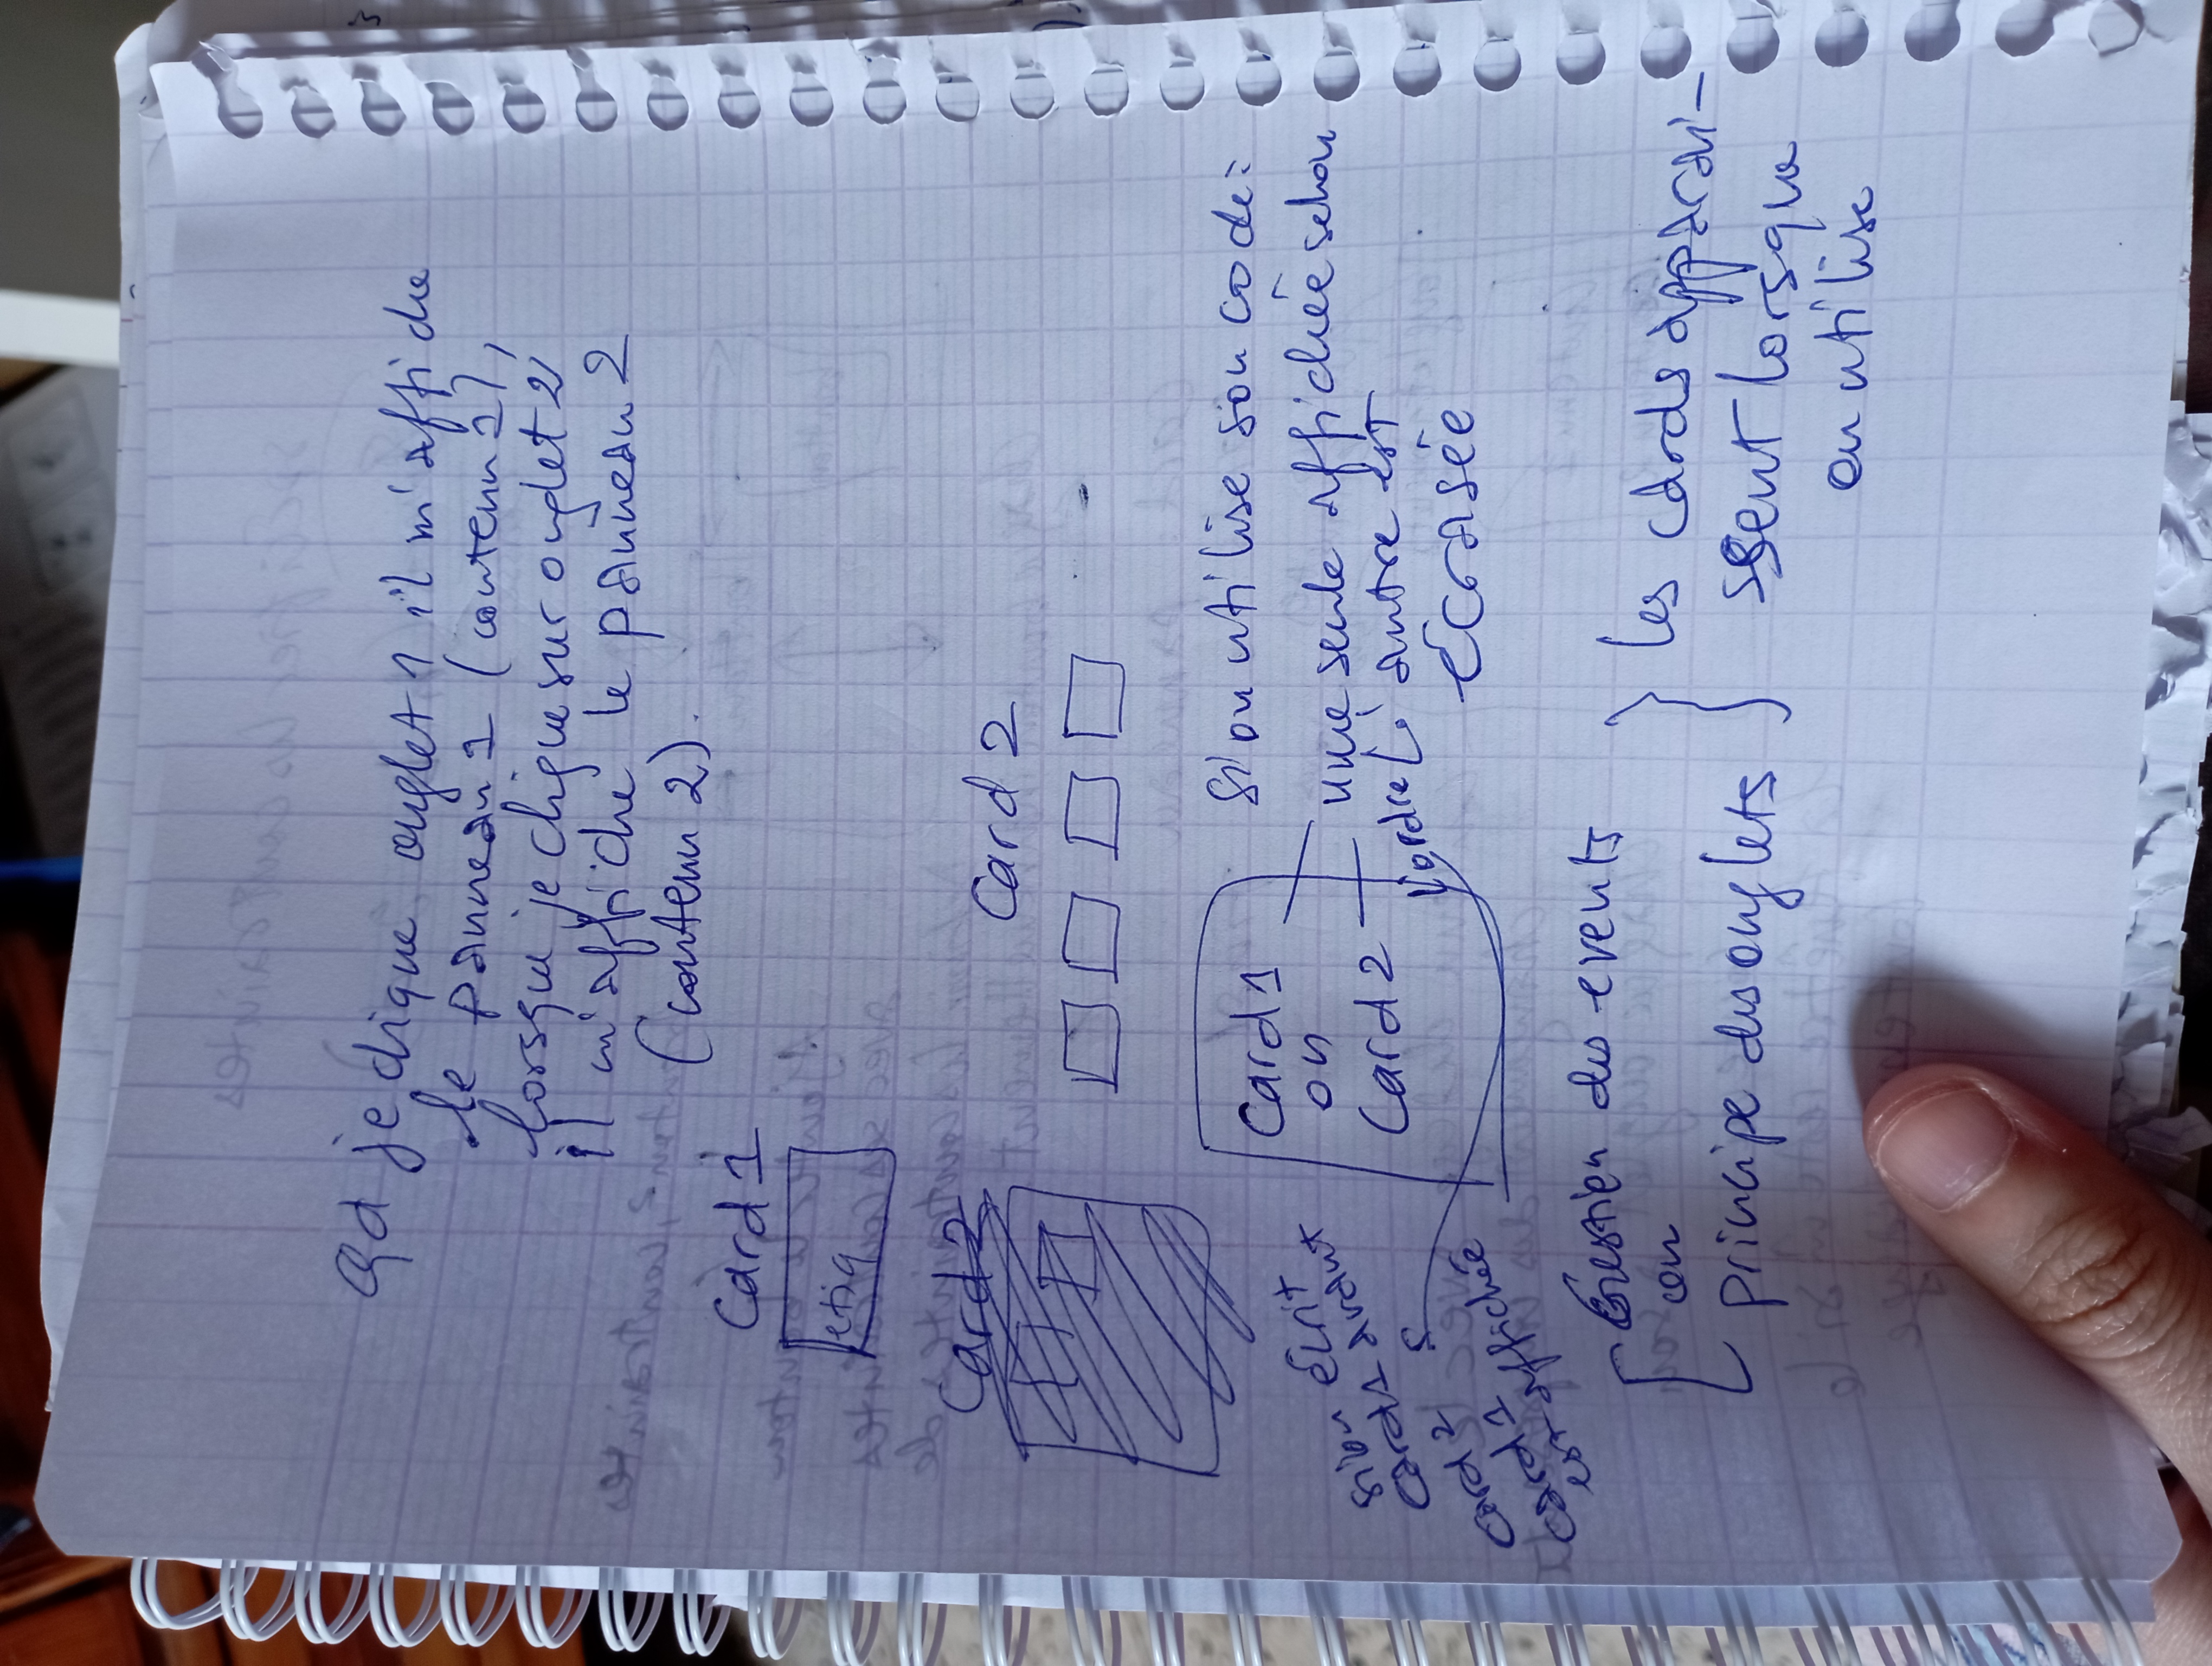 Qd je clique onglet 1 il m'affiche
le panneau 1 (contenu 1),
lorsque je clique sur onglet 2
il m'affiche le panneau 2
(contenu 2).
Card 1
etiq
Card 2
Card 2
Card 1
ou
Card 2
Si on utilise son code:
une seule affichée selon
l'ordre L'autre est
écrasée
si on écrit
card1 avant
card2
card1
est affichée
Gestion des events
ou
principe des onglets
les cards apparai-
ssent lorsque
on utilise